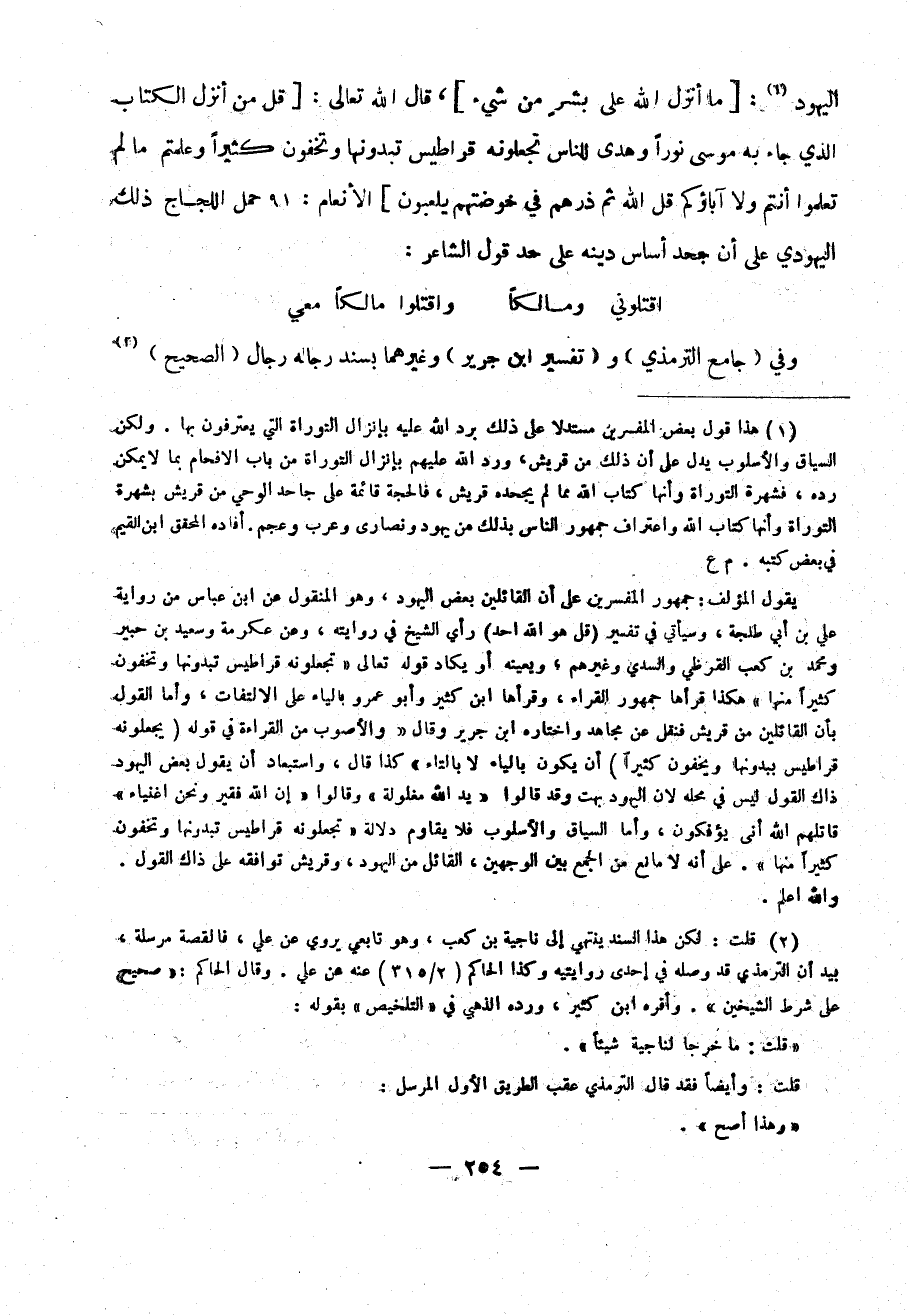 اليهود (١) : [ ما أنزل الله على بشر من شيء ] ، قال الله تعالى : [ قل من أنزل الكتاب
الذي جاء به موسى نوراً وهدى للناس تجعلونه قراطيس تبدونها وتخفون كثيراً وعلمتم ما لم
تعلموا أنتم ولا آباؤكم قل الله ثم ذرهم في خوضتهم يلعبون ] الأنعام : ٩١ حمل اللجاج ذلك
اليهودي على أن جحد أساس دينه على حد قول الشاعر :
اقتلوني ومالكاً واقتلوا مالكاً معي
وفي ( جامع الترمذي ) و ( تفسير ابن جرير ) وغيرهما بسند رجاله رجال ( الصحيح ) (٢)
(١) هذا قول بعض المفسرين مستدلا على ذلك برد الله عليه بإنزال التوراة التي يعترفون بها . ولكن
السياق والأسلوب يدل على أن ذلك من قريش ، ورد الله عليهم بإنزال التوراة من باب الافحام بما لايمكن
رده ، فشهرة التوراة وأنها كتاب الله مما لم يجحده قريش ، فالحجة قائمة على جاحد الوحي من قريش بشهرة
التوراة وأنها كتاب الله واعتراف جمهور الناس بذلك من يهود ونصارى وعرب وعجم . أفاده المحقق ابن القيم
في بعض كتبه . م ع
يقول المؤلف : جمهور المفسرين على أن القائلين بعض اليهود ، وهو المنقول عن ابن عباس من رواية
علي بن أبي طلحة ، وسيأتي في تفسير (قل هو الله احد) رأي الشيخ في روايته ، وعن عكرمة وسعيد بن جبير
ومحمد بن كعب القرظي والسدي وغيرهم ، ويعينه أو يكاد قوله تعالى « تجعلونه قراطيس تبدونها وتخفون
كثيراً منها » هكذا قرأها جمهور القراء ، وقرأها ابن كثير وأبو عمرو بالياء على الالتفات ، وأما القول
بأن القائلين من قريش فنقل عن مجاهد واختاره ابن جرير وقال « والأصوب من القراءة في قوله ( يجعلونه
قراطيس يبدونها ويخفون كثيراً ) أن يكون بالياء لا بالتاء » كذا قال ، واستبعاد أن يقول بعض اليهود
ذاك القول ليس في محله لان اليهود بهت وقد قالوا « يد الله مغلولة » وقالوا « إن الله فقير ونحن اغنياء »
قاتلهم الله أنى يؤفكون ، وأما السياق والأسلوب فلا يقاوم دلالة « تجعلونه قراطيس تبدونها وتخفون
كثيراً منها » . على أنه لا مانع من الجمع بين الوجهين ، القائل من اليهود ، وقريش توافقه على ذاك القول .
والله اعلم .
(٢) قلت : لكن هذا السند ينتهي إلى ناجية بن كعب ، وهو تابعي يروي عن علي ، فالقصة مرسلة ،
بيد أن الترمذي قد وصله في إحدى روايتيه وكذا الحاكم ( ٣١٥/٢ ) عنه عن علي . وقال الحاكم : « صحيح
على شرط الشيخين » . وأقره ابن كثير ، ورده الذهبي في « التلخيص » بقوله :
« قلت : ما خرجا لناجية شيئاً » .
قلت : وأيضاً فقد قال الترمذي عقب الطريق الأول المرسل :
« وهذا أصح » .
— ٢٥٤ —